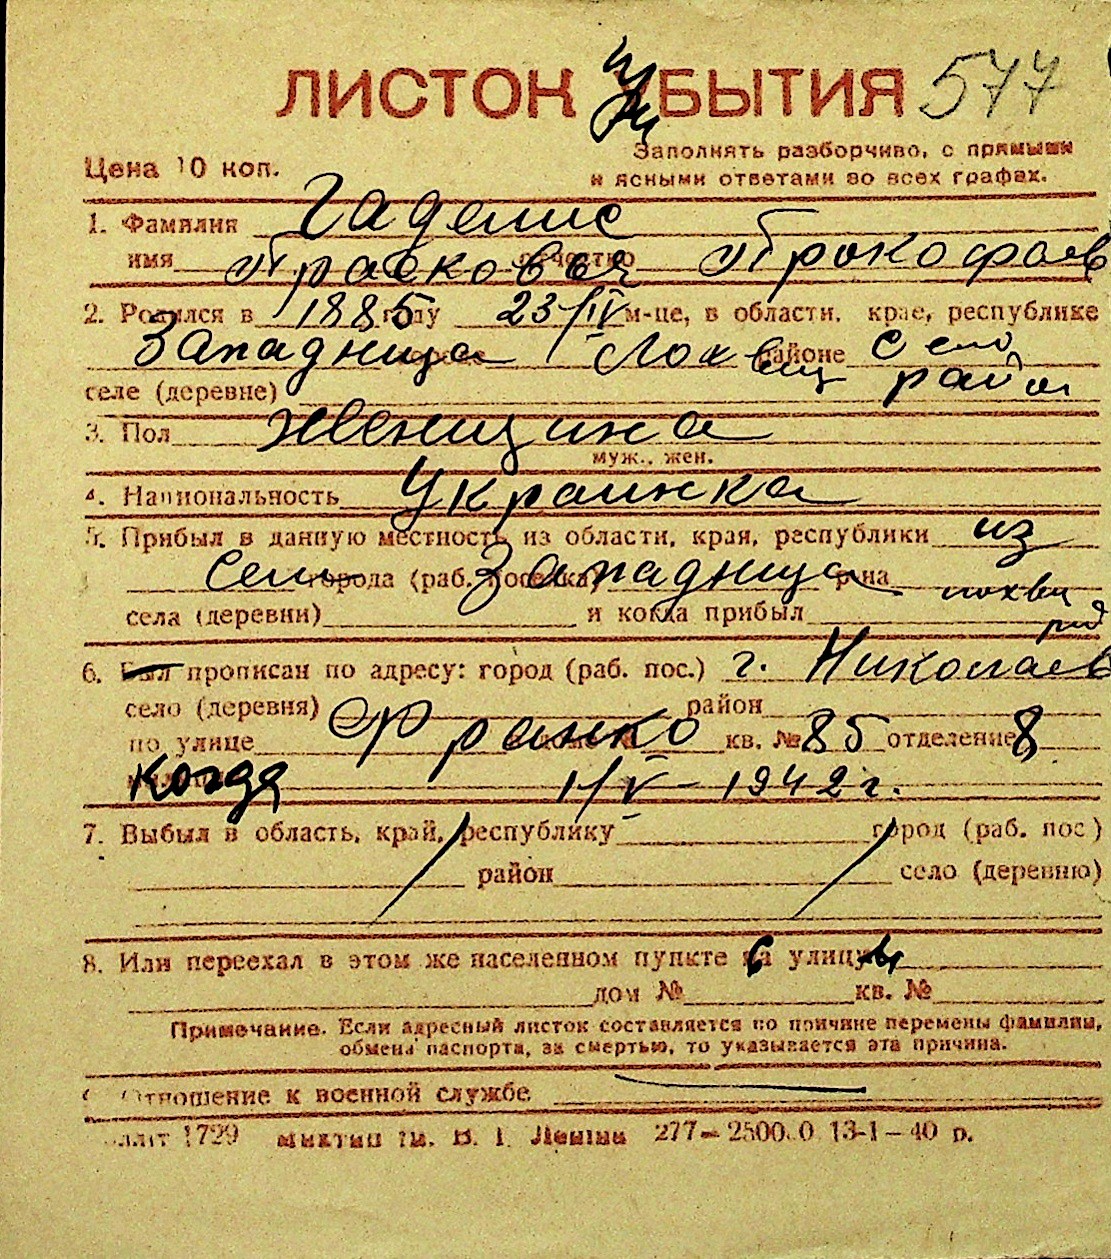 ЛИСТОК УБЫТИЯ 577
Цена 10 коп.
Заполнять разборчиво, с прямыми
и ясными ответами во всех графах.
1. Фамилия Гаденис
имя Прасковья отчество Прокофьев
2. Родился в 1885 году 23/IV м-це, в области, крае, республике
Западница Лохвиц районе село
селе (деревне) район
3. Пол женщина
муж., жен.
4. Национальность Украинка
5. Прибыл в данную местность из области, края, республики из
село города (раб. поселка) Западница р-на лохвиц
села (деревни) и когда прибыл
6. Был прописан по адресу: город (раб. пос.) г. Николаев
село (деревня) район
по улице Франко кв. № 85 отделение 8
когда 1/V – 1942 г.
7. Выбыл в область, край, республику город (раб. пос)
район село (деревню)
8. Или переехал в этом же населенном пункте на улицу
дом № кв. №
Примечание. Если адресный листок составляется по причине перемены фамилии,
обмена паспорта, за смертью, то указывается эта причина.
Отношение к военной службе
1729 277—2500.0 13-1—40 р.